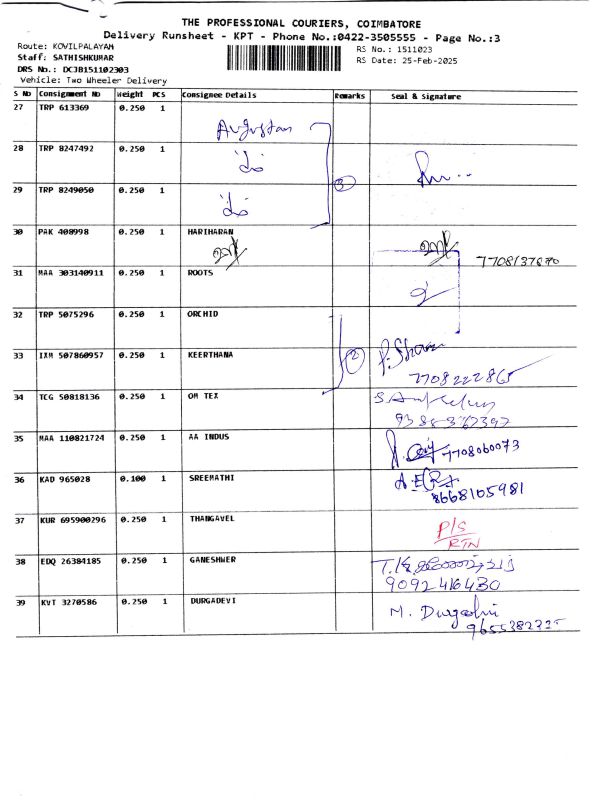 THE PROFESSIONAL COURIERS, COIMBATORE
Delivery Runsheet - KPT - Phone No.:0422-3505555 - Page No.:3
Route: KOVILPALAYAM
RS No.: 1511023
Staff: SATHISHKUMAR
RS Date: 25-Feb-2025
DRS No.: DCJB151102303
Vehicle: Two Wheeler Delivery
S No Consignment No Weight PCS Consignee Details Remarks Seal & Signature
27 TRP 613369 0.250 1
28 TRP 8247492 0.250 1
29 TRP 8249050 0.250 1
3
30 PAK 408998 0.250 1 HARIHARAN
31 MAA 303140911 0.250 1 ROOTS
32 TRP 5075296 0.250 1 ORCHID
33 IXM 507860957 0.250 1 KEERTHANA 2
7708222865
34 TCG 50818136 0.250 1 OM TEX
35 MAA 110821724 0.250 1 AA INDUS
7708060073
36 KAD 965028 0.100 1 SREEMATHI
8668105981
37 KUR 695900296 0.250 1 THANGAVEL P/S
RTN
38 EDQ 26384185 0.250 1 GANESHWER
9092416430
39 KVT 3270586 0.250 1 DURGADEVI M.